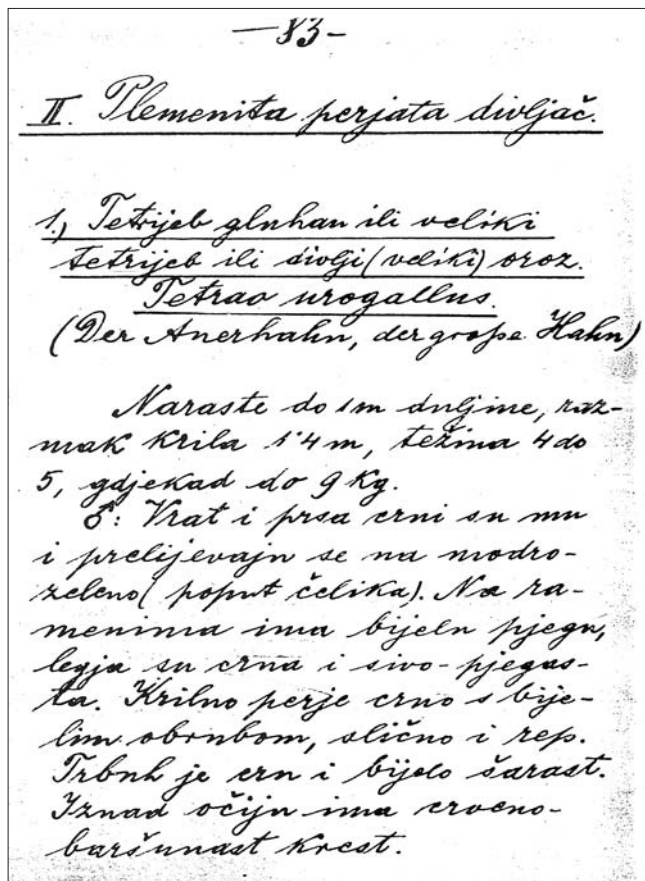 —83-
II. Plemenita perjata divljač.
1., Tetrijeb gluhan ili veliki
tetrijeb ili divlji (veliki) oroz.
Tetrao urogallus.
(Der Auerhahn, der große Hahn)
Naraste do 1m duljine, raz-
mak krila 1·4 m, težina 4 do
5, gdjekad do 9 Kg.
♂: Vrat i prsa crni su mu
i prelijevaju se na modro-
zeleno (poput čelika). Na ra-
menima ima bijelu pjegu,
legja su crna i sivo-pjegas-
ta. Krilno perje crno s bije-
lim obrubom, slično i rep.
Trbuh je crn i bijelo šarast.
Iznad očiju ima crveno-
baršunast krest.